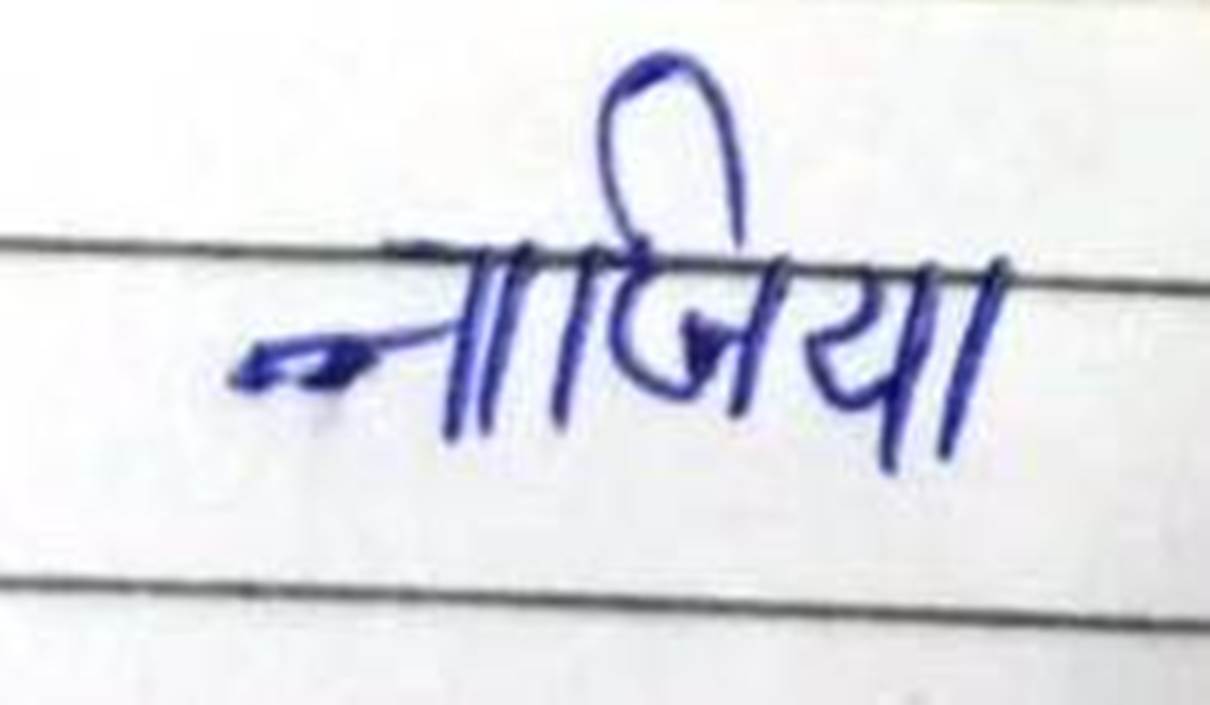 नाजिया